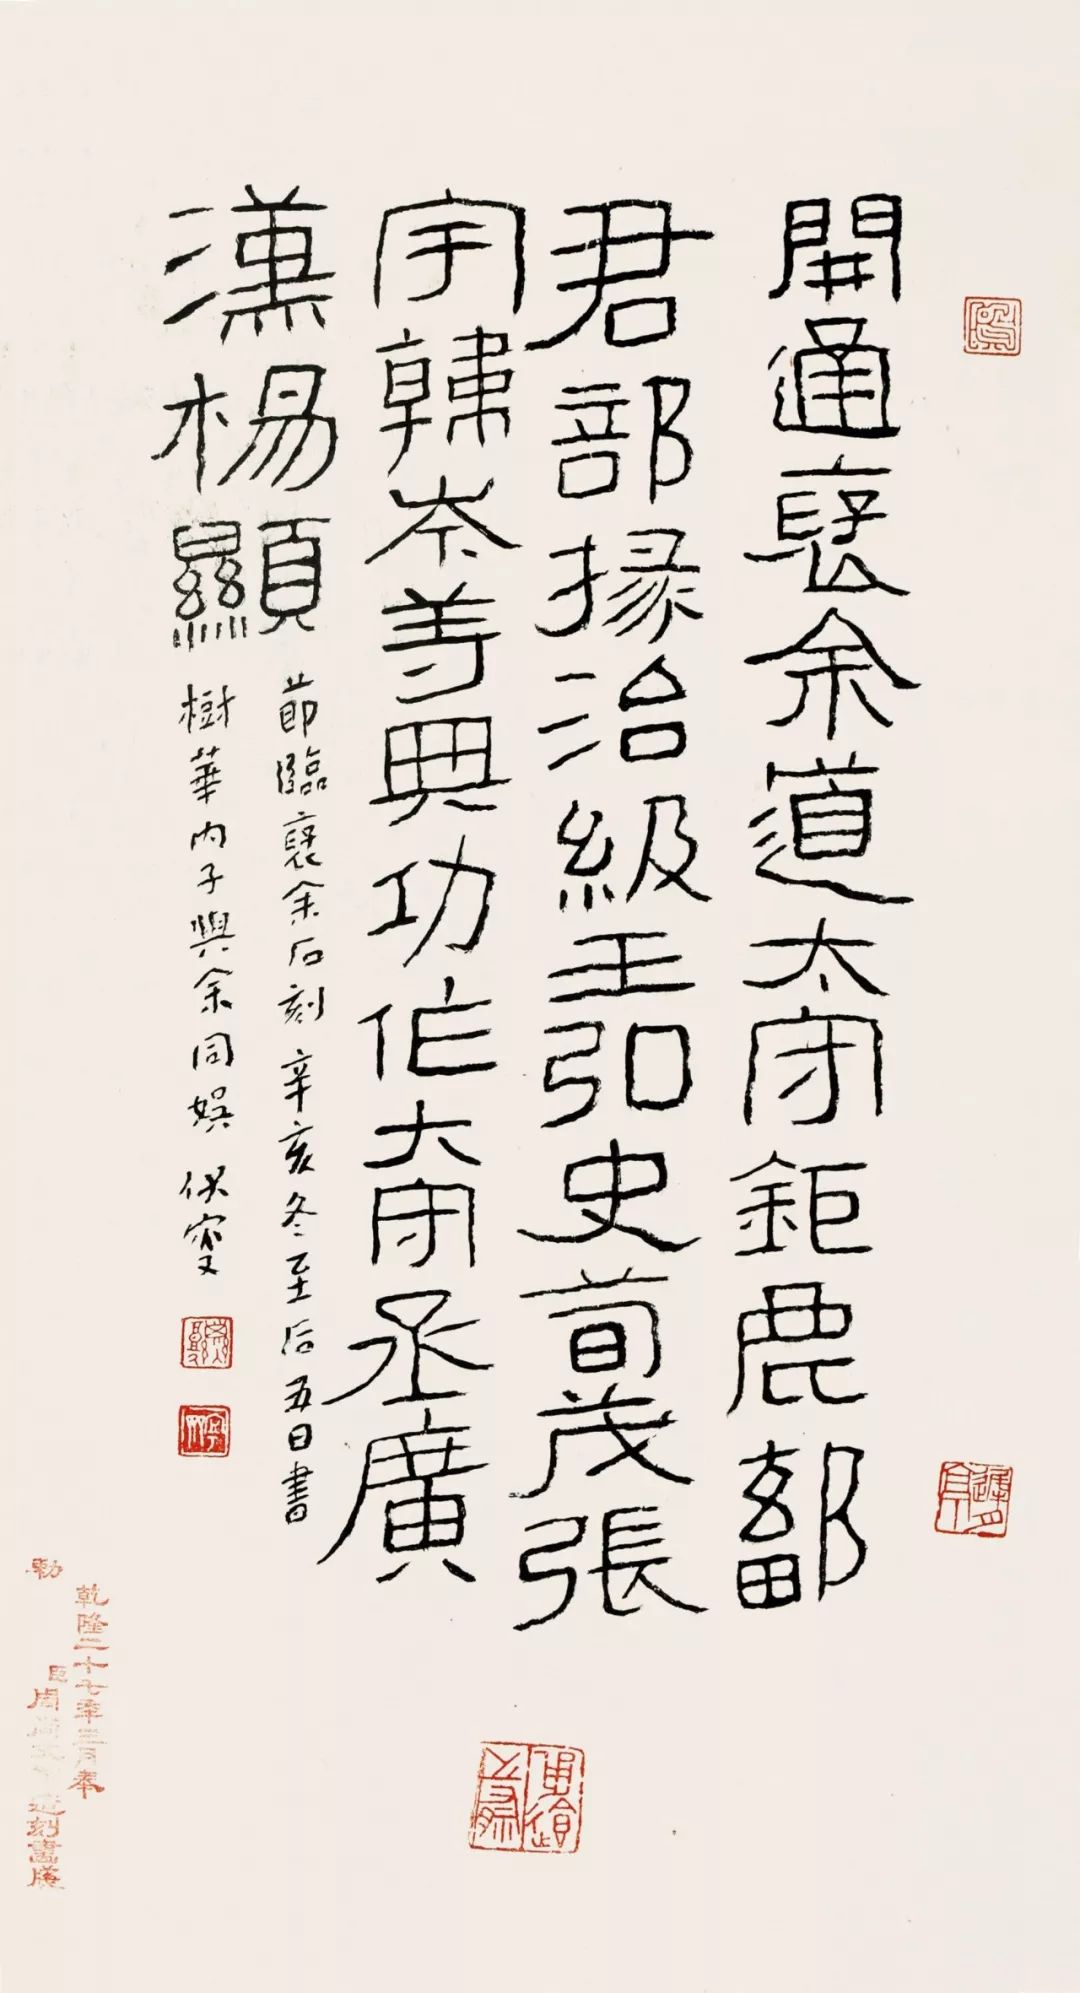 開通褒余道太守鉅鹿鄐
君部掾治級王弘史荀茂張
宇韓岑等興功作大守丞廣
漢楊顯
節臨褒余石刻 辛亥冬至后五日書
樹華內子與余同娛 伏
乾隆二十七年三月奉
勅
臣周
刻